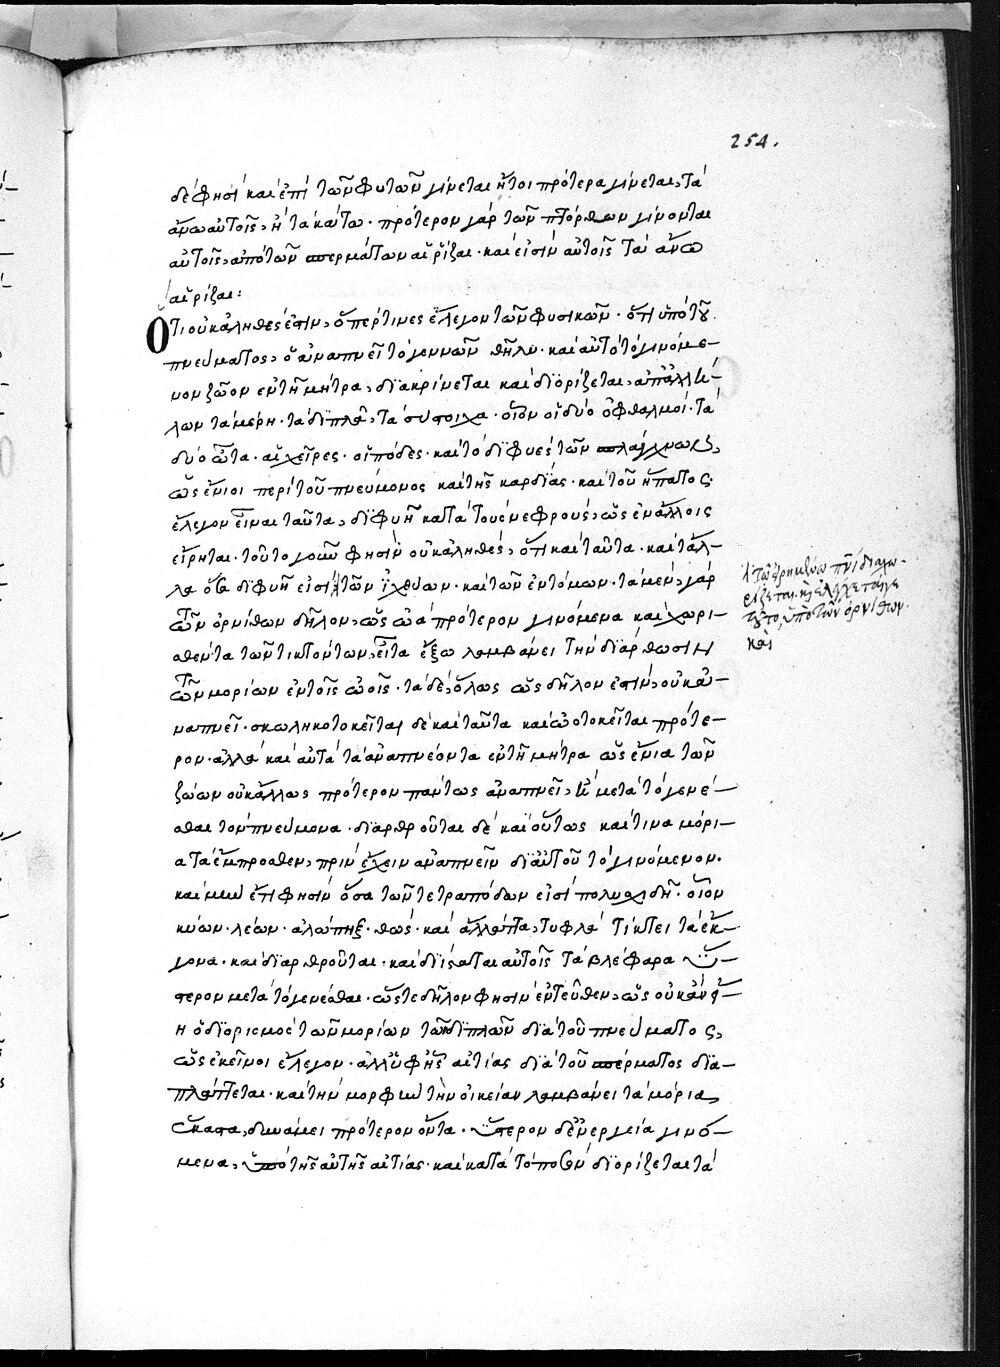 254.
δέ φησι καὶ ἐπὶ τῶν φυτῶν γίνεται ἤτοι πρότερα γίνεται, τὰ
ἄνω αὐτοῖς, ἢ τὰ κάτω· πρότερον γὰρ τῶν πτόρθων γίνονται
αὐτοῖς, ἀπὸ τῶν σπερμάτων αἱ ῥίζαι· καὶ εἰσὶν αὐτοῖς τὰ ἄνω
αἱ ῥίζαι:
Ὅτι οὐκ ἀληθές ἐστιν, ὅπερ τινὲς ἔλεγον τῶν φυσικῶν· ὅτι ὑπὸ τοῦ
πνεύματος, ὃ ἀναπνεῖ τὸ γεννῶν θῆλυ· καὶ αὐτὸ τὸ γινόμε-
νον ζῶον ἐν τῇ μήτρα, διακρίνεται καὶ διορίζεται, ἀπ' ἀλλή-
λων τὰ μέρη· τὰ διπλᾶ, τὰ σύστοιχα· οἷον οἱ δύο ὀφθαλμοί· τὰ
δύο ὦτα· αἱ χεῖρες· οἱ πόδες· καὶ τὸ διφυὲς τῶν σπλάγχνων,
ὡς ἔνιοι περὶ τοῦ πνεύμονος καὶ τῆς καρδίας· καὶ τοῦ ἥπατος·
ἔλεγον εἶναι ταῦτα, διφυῆ κατὰ τοὺς νεφρούς, ὡς ἐν ἄλλοις
εἴρηται· τοῦτο γοῦν φησὶν οὐκ ἀληθές, ὅτι καὶ ταῦτα· καὶ τἄλ-
λα ὅσα διφυῆ εἰσὶ τῶν ἰχθύων· καὶ τῶν ἐντόμων· τὰ μὲν, γὰρ
τῶν ὀρνίθων δῆλον, ὡς ὠὰ πρότερον γινόμενα καὶ χωρι-
σθέντα τῶν τικτόντων, εἶτα ἔξω λαμβάνει τὴν διάρθωσιν
τῶν μορίων ἐν τοῖς ὠοῖς· τὰ δὲ, ὅλως ὡς δῆλον ἐστὶν, οὐκ ἀ-
ναπνεῖ· σκωληκοτοκεῖται δὲ καὶ ταῦτα καὶ ὠοτοκεῖται πρότε-
ρον· ἀλλὰ καὶ αὐτὰ τὰ ἀναπνέοντα ἐν τῇ μήτρα ὡς ἔνια τῶν
ζώων οὐκ ἄλλως πρότερον πάντως ἀναπνεῖ, εἰ μὴ μετὰ τὸ γενέ-
σθαι τὸν πνεύμονα· διαρθροῦται δὲ καὶ οὕτως καὶ τινα μόρι-
α τὰ ἔμπροσθεν, πρὶν ἔχειν ἀναπνεῖν δι' αὐτοῦ τὸ γινόμενον·
καὶ μὴν ἔτι φησὶν ὅσα τῶν τετραπόδων εἰσὶ πολυσχιδῆ· οἷον
κύων· λέων· ἀλώπηξ· θώς· καὶ ἄλλ' ἄττα, τυφλὰ τίκτει τὰ ἔκ-
γονα· καὶ διαρθροῦται· καὶ διίσταται αὐτοῖς τὰ βλέφαρα ὕ-
στερον μετὰ τὸ γενέσθαι· ὥστε δῆλον φησὶν ἐντεῦθεν, ὡς οὐκ ἂν εἴ-
η ὁ διορισμὸς τῶν μορίων τῶν διπλῶν διὰ τοῦ πνεύματος,
ὡς ἐκεῖνοι ἔλεγον· ἀλλ' ὑφ' ἧς αἰτίας διὰ τοῦ σπέρματος δια-
πλάττεται· καὶ τὴν μορφὴν τὴν οἰκείαν λαμβάνει τὰ μόρια,
ἕκαστα, δυνάμει πρότερον ὄντα· ὕστερον δ' ἐνεργεία γινό-
μενα, ὑπὸ τῆς αὐτῆς αἰτίας· καὶ κατὰ τὸ ποσὸν διορίζεται τὰ
ρίζεται· καὶ ἐλέγχεται γε
τοῦτο, ὑπὸ τῶν ὀρνίθων·
καὶ